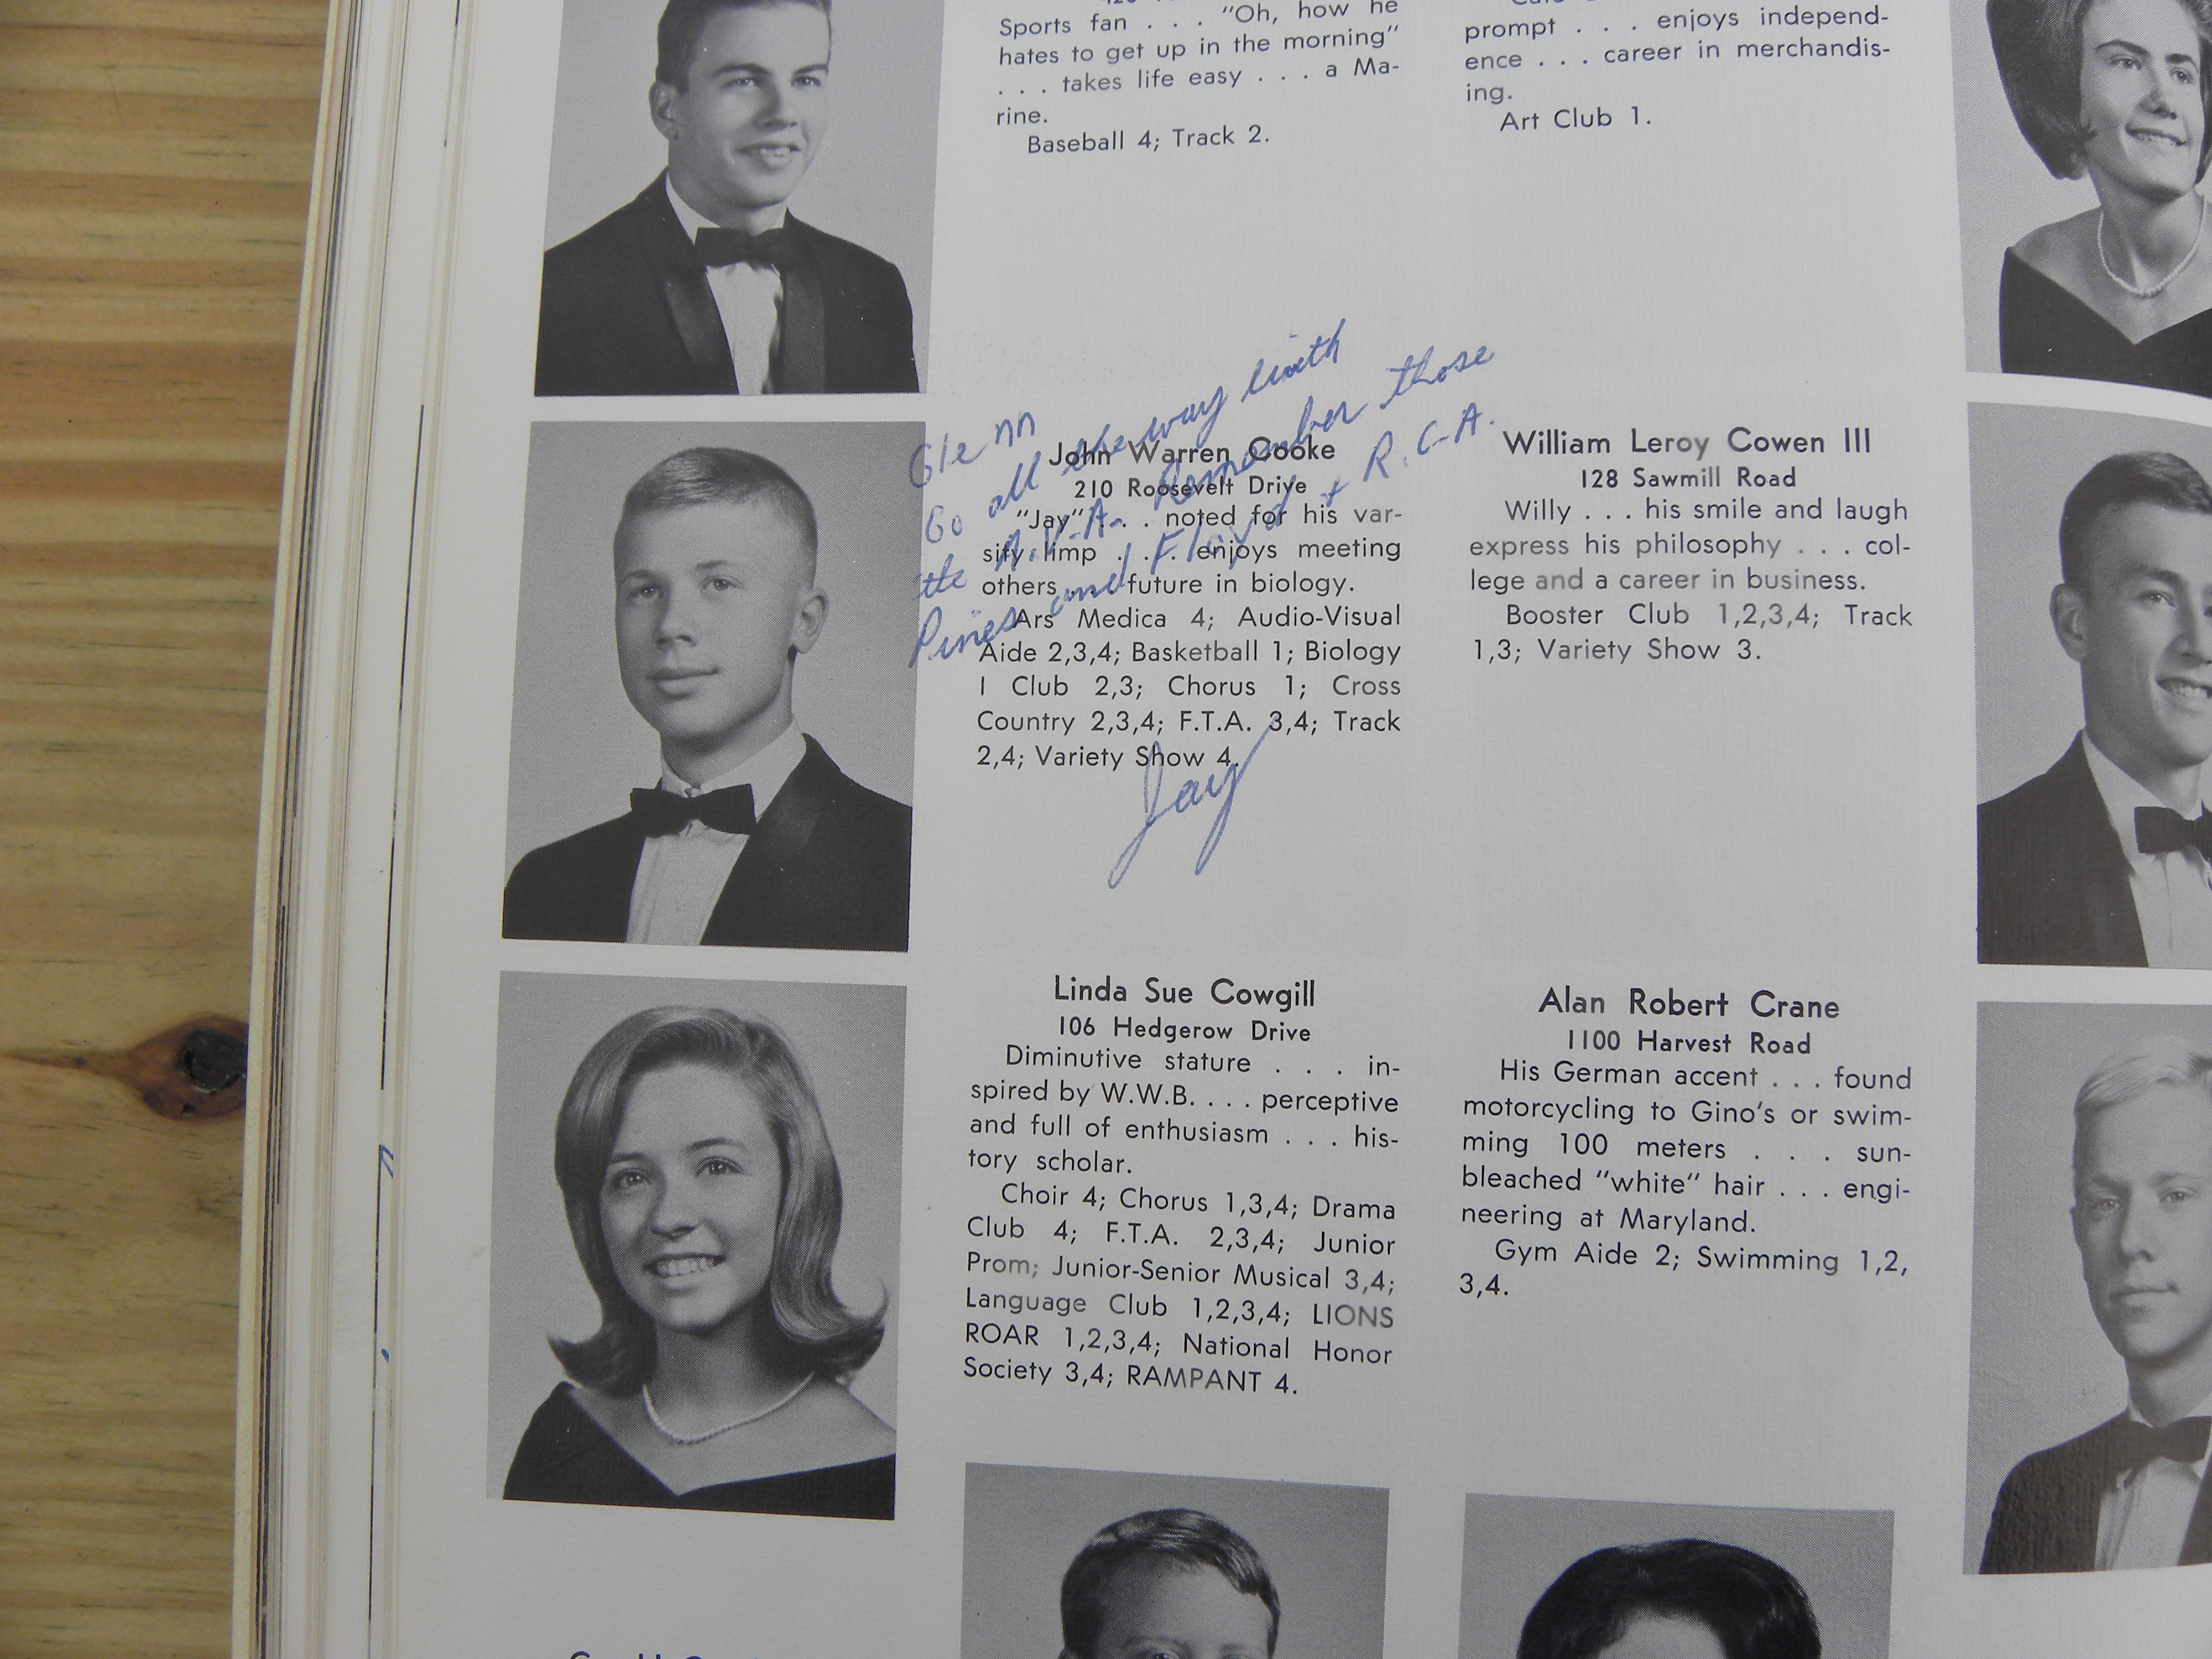 Sports fan . . . "Oh, how he
hates to get up in the morning"
. . . takes life easy . . . a Ma-
rine.
Baseball 4; Track 2.
prompt . . . enjoys independ-
ence . . . career in merchandis-
ing.
Art Club 1.
Glenn
Go all the way with
the A.V.A. Remember those
Pines and Floyd + R.C.A.
Jay
John Warren Cooke
210 Roosevelt Drive
"Jay" . . . noted for his var-
sity limp . . . enjoys meeting
others . . . future in biology.
Ars Medica 4; Audio-Visual
Aide 2,3,4; Basketball 1; Biology
I Club 2,3; Chorus 1; Cross
Country 2,3,4; F.T.A. 3,4; Track
2,4; Variety Show 4.
William Leroy Cowen III
128 Sawmill Road
Willy . . . his smile and laugh
express his philosophy . . . col-
lege and a career in business.
Booster Club 1,2,3,4; Track
1,3; Variety Show 3.
Linda Sue Cowgill
106 Hedgerow Drive
Diminutive stature . . . in-
spired by W.W.B. . . . perceptive
and full of enthusiasm . . . his-
tory scholar.
Choir 4; Chorus 1,3,4; Drama
Club 4; F.T.A. 2,3,4; Junior
Prom; Junior-Senior Musical 3,4;
Language Club 1,2,3,4; LIONS
ROAR 1,2,3,4; National Honor
Society 3,4; RAMPANT 4.
Alan Robert Crane
1100 Harvest Road
His German accent . . . found
motorcycling to Gino's or swim-
ming 100 meters . . . sun-
bleached "white" hair . . . engi-
neering at Maryland.
Gym Aide 2; Swimming 1,2,
3,4.